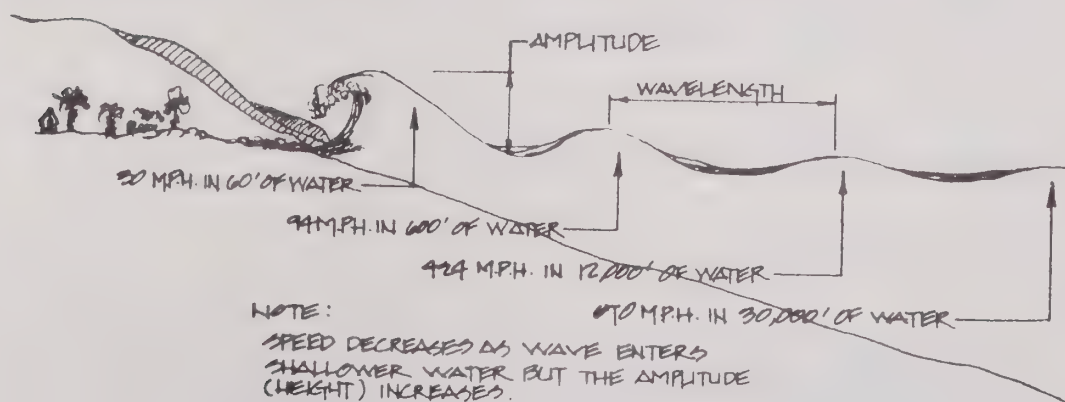 AMPLITUDE
WAVELENGTH
30 M.P.H. IN 60' OF WATER
94 M.P.H. IN 600' OF WATER
424 M.P.H. IN 12,000' OF WATER
670 M.P.H. IN 30,000' OF WATER
NOTE:
SPEED DECREASES AS WAVE ENTERS
SHALLOWER WATER BUT THE AMPLITUDE
(HEIGHT) INCREASES.